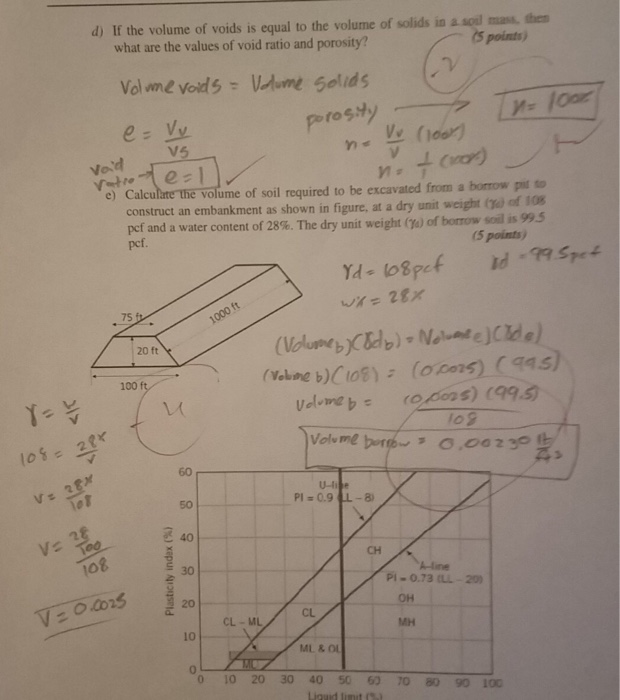 d) If the volume of voids is equal to the volume of solids in a soil mass, then
what are the values of void ratio and porosity? (5 points)
Volume voids = Volume Solids
porosity → n = 100%
e = Vv/Vs
n = Vv/V (100%)
n = 1/1 (100%)
void ratio → e = 1
e) Calculate the volume of soil required to be excavated from a borrow pit to
construct an embankment as shown in figure, at a dry unit weight (γd) of 108
pcf and a water content of 28%. The dry unit weight (γd) of borrow soil is 99.5
pcf. (5 points)
γd = 108 pcf
γd = 99.5 pcf
w% = 28%
75 ft
1000 ft
20 ft
100 ft
(Volume b)(γd b) = (Volume e)(γd e)
(Volume b)(108) = (0.0025)(99.5)
Volume b = (0.0025)(99.5)/108
Volume borrow = 0.00230
γ = w/v
108 = 28%/v
v = 28%/108
v = 28/100/108
V = 0.0025
Plasticity index (%)
60
50
40
30
20
10
0
U-line
PI = 0.9 (LL - 8)
CH
A-line
PI = 0.73 (LL - 20)
OH
MH
CL
CL - ML
ML & OL
ML
0 10 20 30 40 50 60 70 80 90 100
Liquid limit (%)